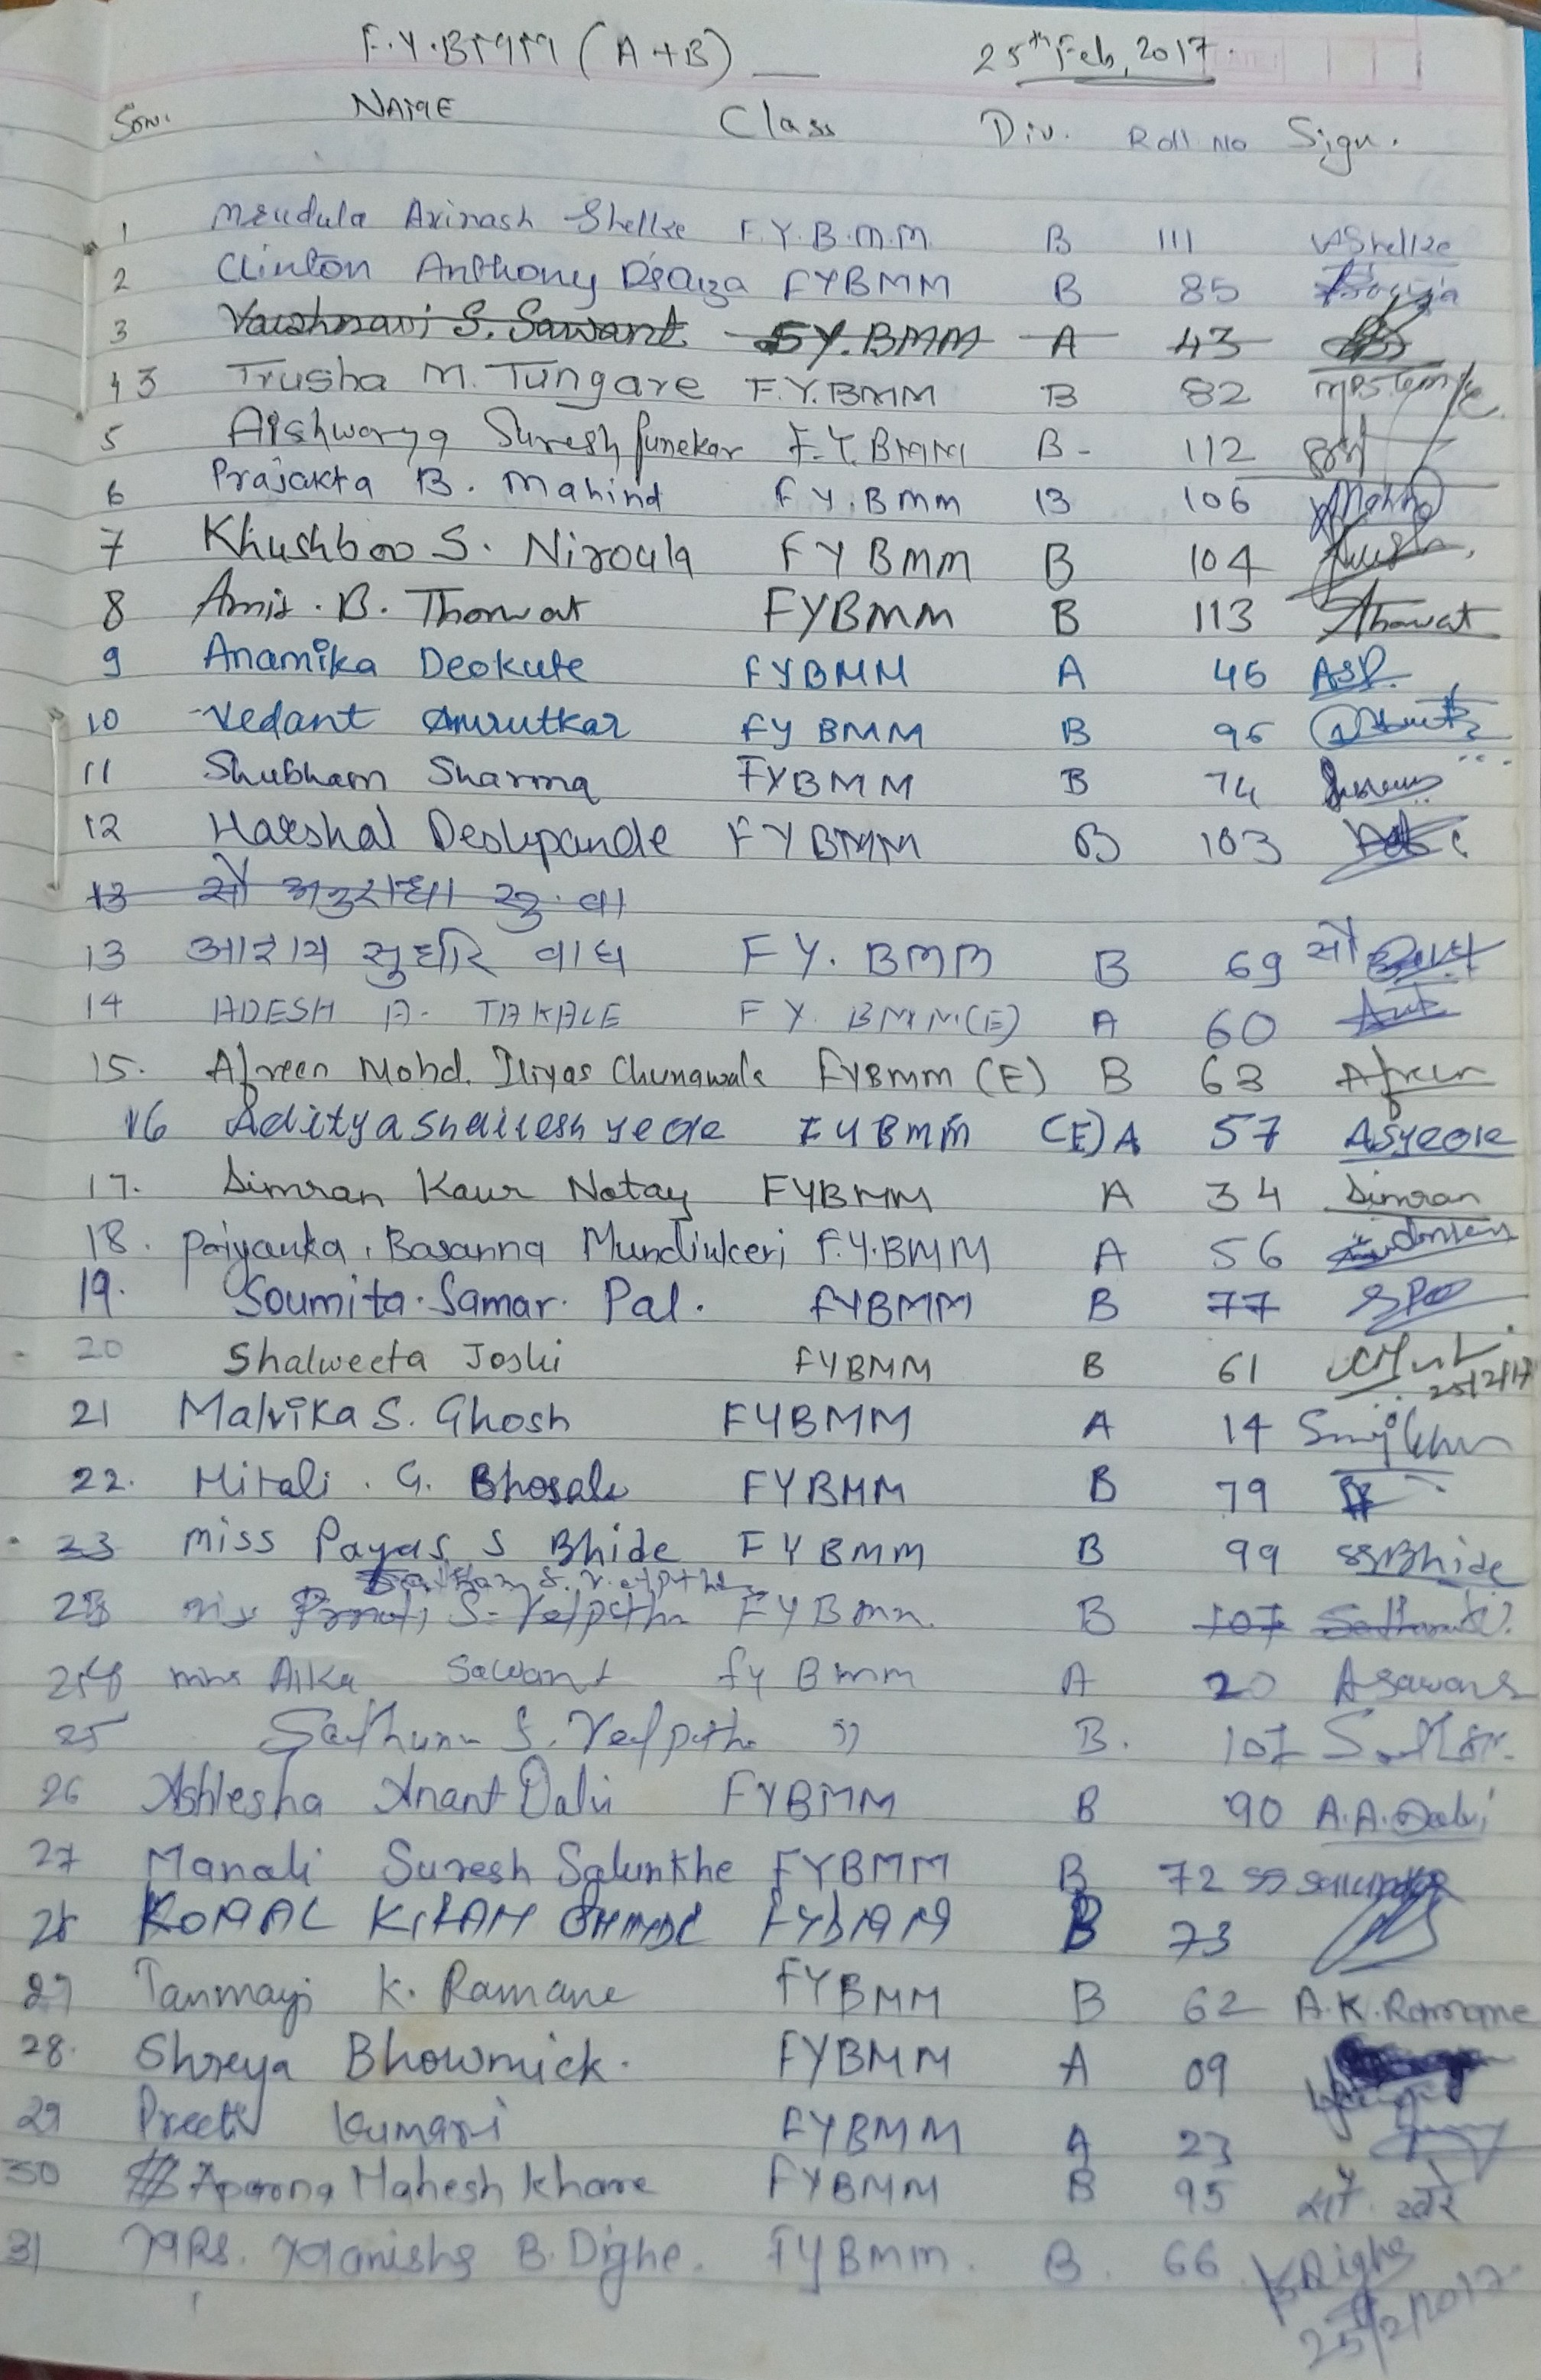 F.Y.BMM (A+B) 25th Feb, 2017.
Srn. NAME Class Div. Roll No Sign.
1 Mrudula Avinash Shelke F.Y.B.M.M B 111 VAShelke
2 Clinton Anthony D'souza FYBMM B 85
3 Vaishnavi S. Sawant SY.BMM A 43
43 Trusha M. Tungare F.Y.BMM B 82
5 Aishwarya Suresh Punekar F.Y.BMM B- 112
6 Prajakta B. Mahind F.Y.BMM B 106
7 Khushboo S. Niroula FYBMM B 104
8 Amit . B. Thorwat FYBMM B 113 Thorwat
9 Anamika Deokute FYBMM A 46 ASD.
10 Vedant Amrutkar FYBMM B 96
11 Shubham Sharma FYBMM B 74
12 Harshal Deshpande FYBMM B 103
13 सौ अनुराधा सु. वा
13 सुधीर वाघ F.Y. BMM B 69 सौ
14 ADESH A. TAKALE F Y. BMM(E) A 60
15. Afreen Mohd. Iliyas Chunawala FYBMM (E) B 63 Afreen
16 Aditya Shailesh yeole FYBMM (E) A 57 ASyeole
17. Simran Kaur Notay FYBMM A 34 Simran
18. Priyanka . Basanna Mundinkeri F.Y.BMM A 56
19. Soumita. Samar. Pal. FYBMM B 77 SPal
20 Shalweeta Joshi FYBMM B 61 25/2/17
21 Malvika S. Ghosh FYBMM A 14
22. Mitali . G. Bhosale FYBMM B 79
23 miss Payas S Bhide FYBMM B 99 SSBhide
S. Velpitha
23 S. Velpitha FYBmm. B 107
24 Alka Sawant fy Bmm A 20 Asawant
25 S. Velpitha " B. 107
26 Ashlesha Anant Dalvi FYBMM B 90 A.A.Dalvi
27 Manali Suresh Salunkhe FYBMM B 72
28 KOMAL KIRAN FYBMM B 73
27 Tanmayi K. Ramane FYBMM B 62 A.K.Ramane
28. Shreya Bhowmick. FYBMM A 09
29 Preeti Kumari FYBMM A 23
30 Aparna Mahesh Khare FYBMM B 95 सौ. खरे
31 MRS. Manisha B. Dighe. FYBMM. B. 66 Dighe
25/2/2017